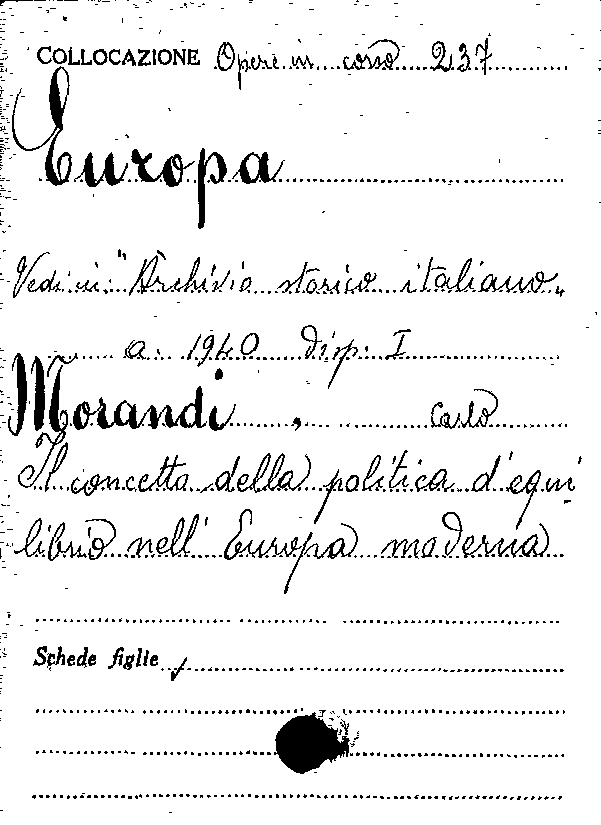 COLLOCAZIONE Opere in corso 237
Europa
Vedi in: "Archivio storico italiano„
a. 1940 disp. I
Morandi, Carlo
Il concetto della politica d'equi
librio nell'Europa moderna
Schede figlie ✓